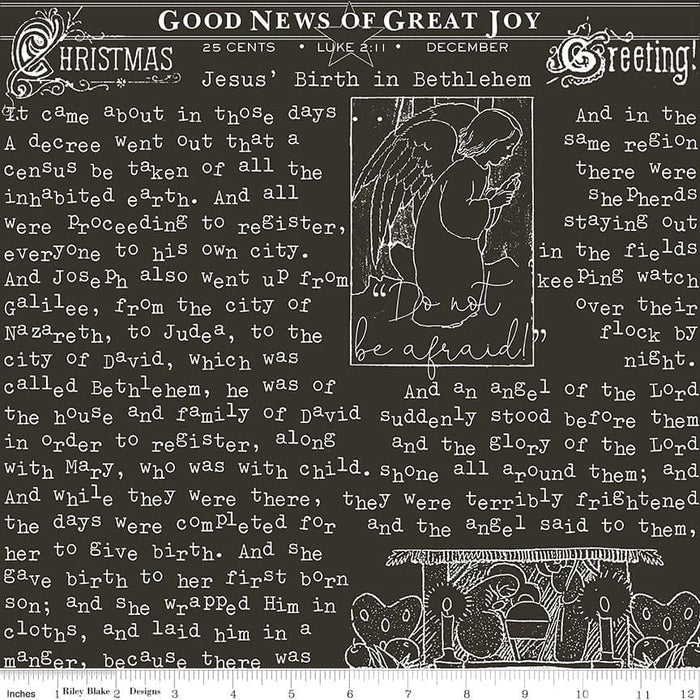 GOOD NEWS OF GREAT JOY
CHRISTMAS
25 CENTS • LUKE 2:11 • DECEMBER
Greeting!
Jesus' Birth in Bethlehem
It came about in those days
A decree went out that a
census be taken of all the
inhabited earth. And all
were proceeding to register,
everyone to his own city.
And Joseph also went up from
Galilee, from the city of
Nazareth, to Judea, to the
city of David, which was
called Bethlehem, he was of
the house and family of David
in order to register, along
with Mary, who was with child.
And while they were there,
the days were completed for
her to give birth. And she
gave birth to her first born
son; and she wrapped Him in
cloths, and laid him in a
manger, because there was
"Do not
be afraid!"
And in the
same region
there were
shepherds
staying out
in the fields
keeping watch
over their
flock by
night.
And an angel of the Lord
suddenly stood before them
and the glory of the Lord
shone all around them; and
they were terribly frightened
and the angel said to them,
Inches 1 Riley Blake 2 Designs 3 4 5 6 7 8 9 10 11 12